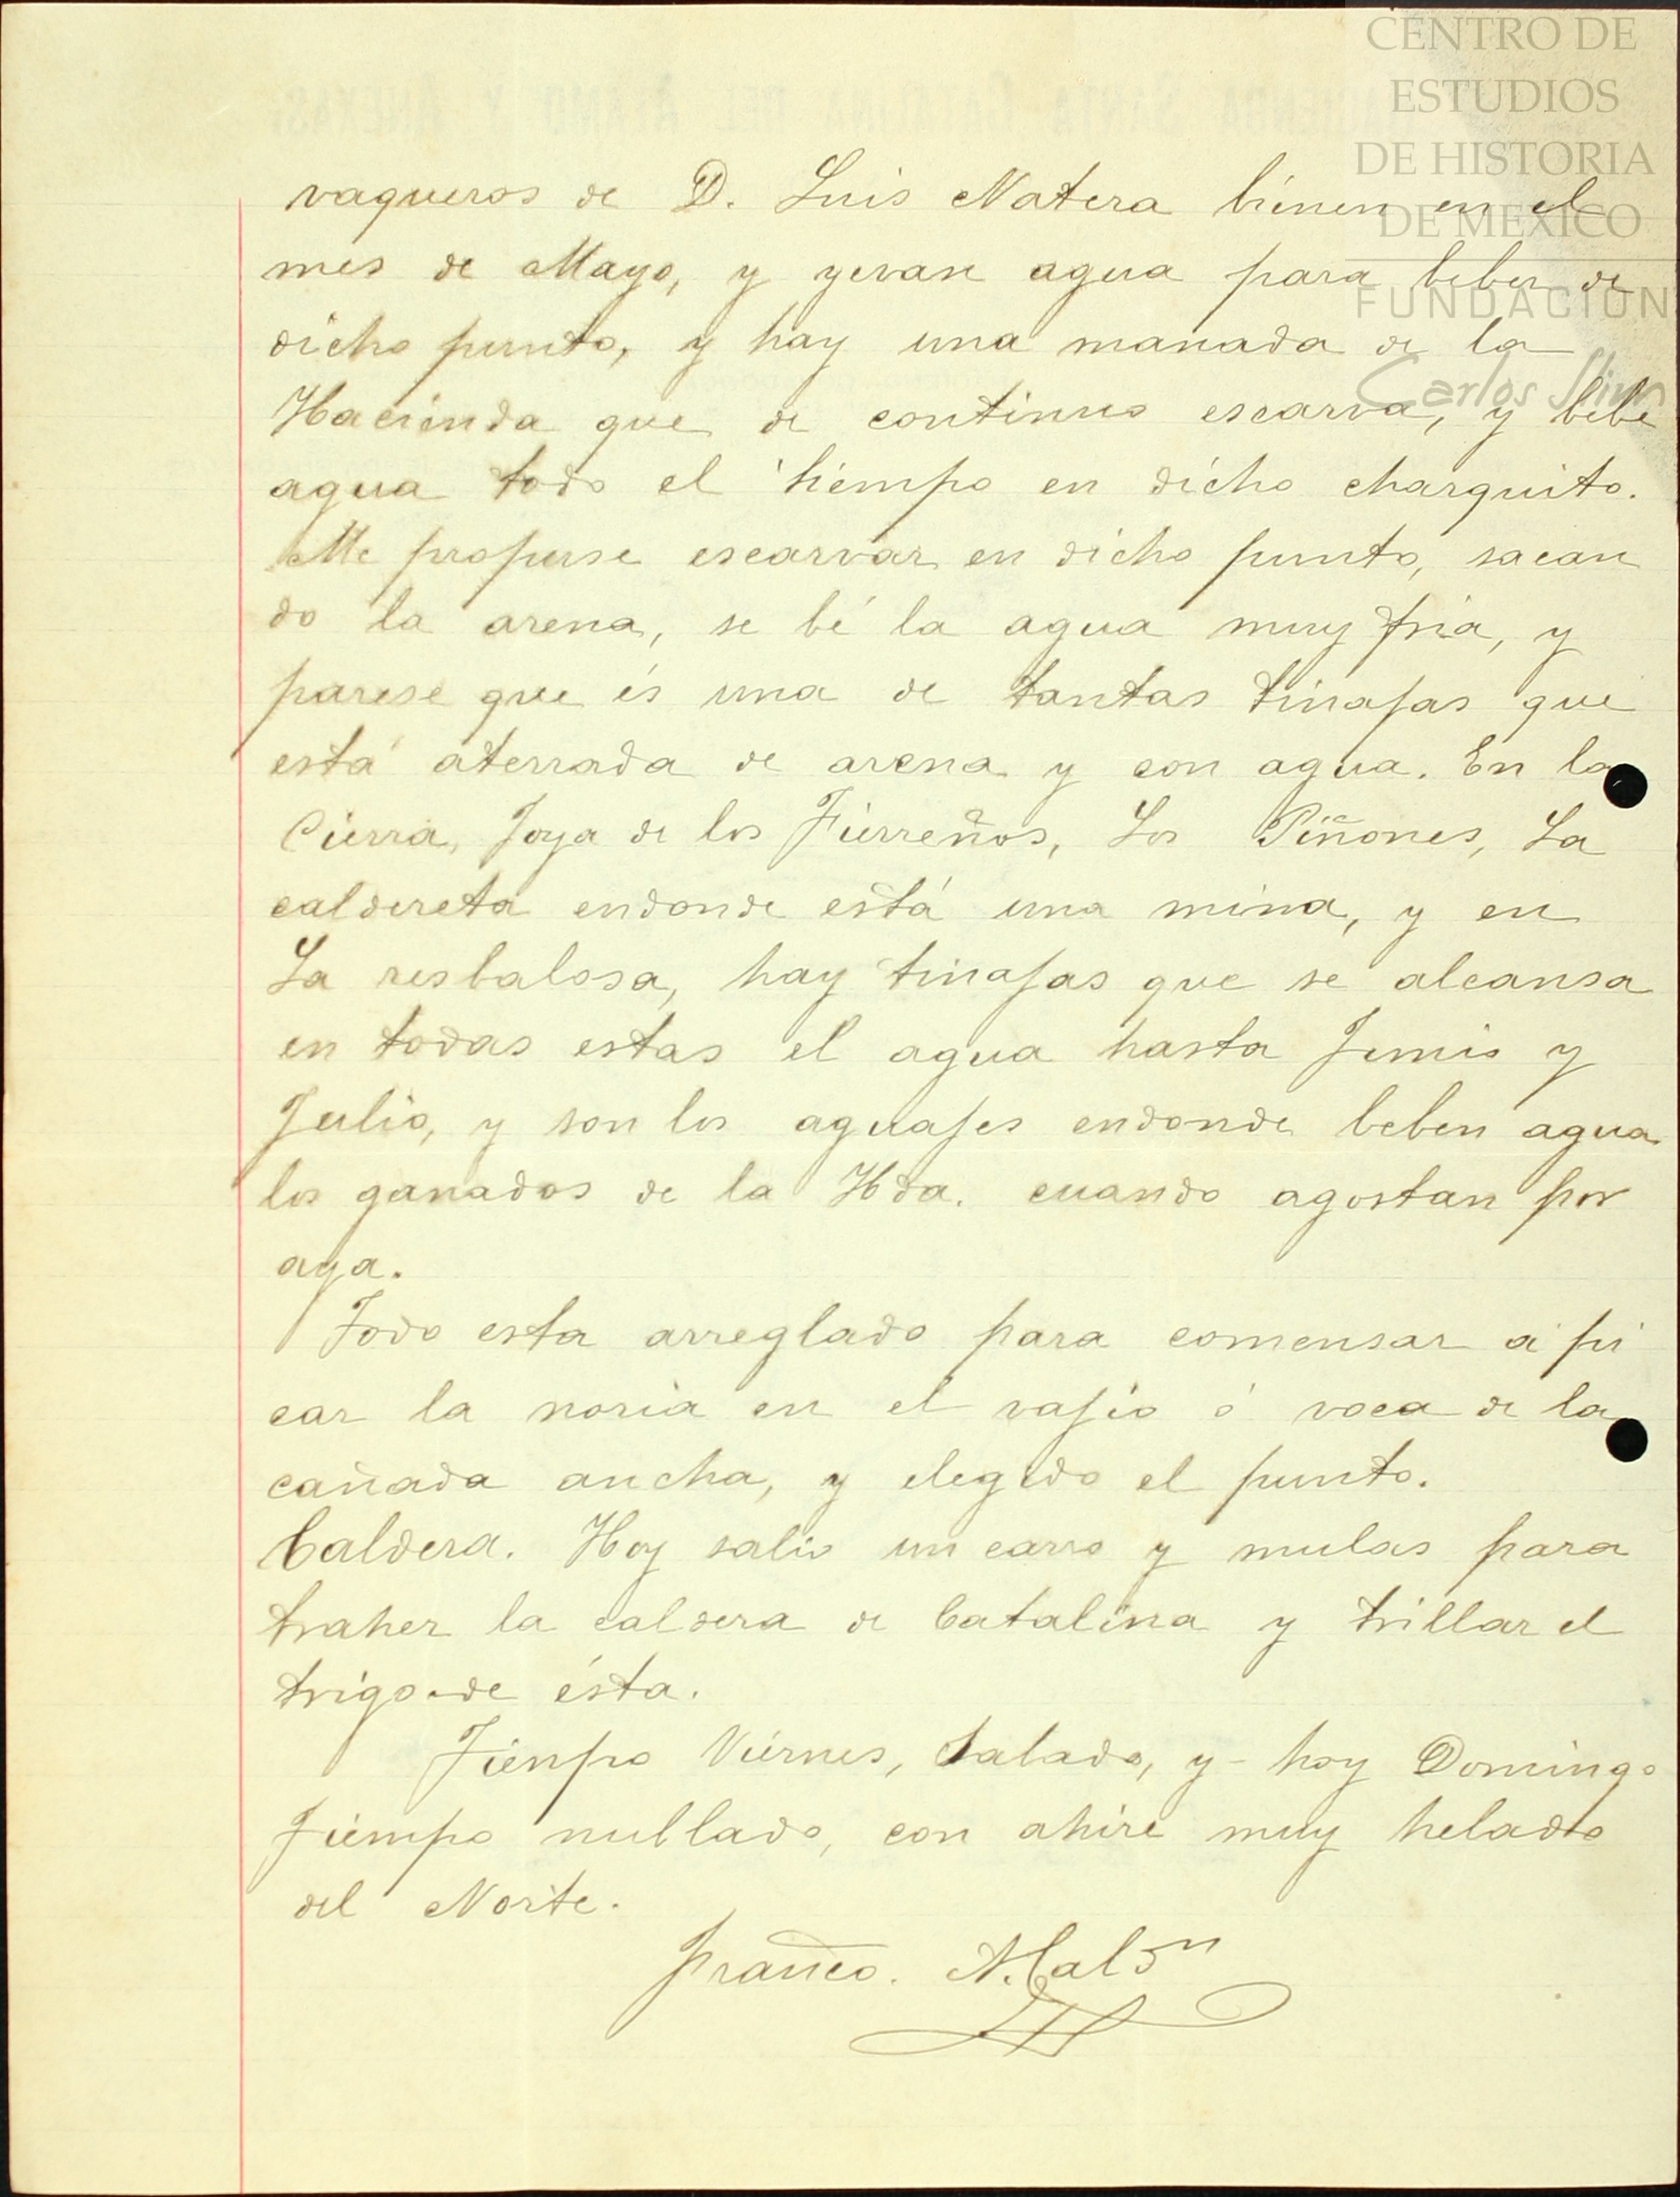 CENTRO DE
ESTUDIOS
DE HISTORIA
DE MÉXICO
FUNDACIÓN
Carlos Slim
vaqueros de D. Luis Natera bienen en el
mes de Mayo, y yevan agua para beber de
dicho punto, y hay una manada de la
Hacienda que de continuo escarva, y bebe
agua todo el tiempo en dicho charquito.
Me propuse escarvar en dicho punto, sacan
do la arena, se bé la agua muy fria, y
parese que és una de tantas tinajas que
está aterrada de arena y con agua. En la
Cierra, Joya de los Fierreños, Los Piñones, La
caldereta endonde está una mina, y en
La resbalosa, hay tinajas que se alcansa
en todas estas el agua hasta Junio y
Julio, y son los aguajes endonde beben agua
los ganados de la Hda. cuando agostan por
aya.
Todo esta arreglado para comensar a pi
car la noria en el vajio ó voca de la
cañada ancha, y elegido el punto.
Caldera. Hoy salio un carro y mulas para
traher la caldera de Catalina y trillar el
trigo de ésta.
Tienpo Viérnes, Salado, y - hoy Domingo
Tiempo nublado, con ahire muy helado
del Norte.
Franco.
HACIENDA SANTA CATARINA DEL ALAMO Y ANEXAS.